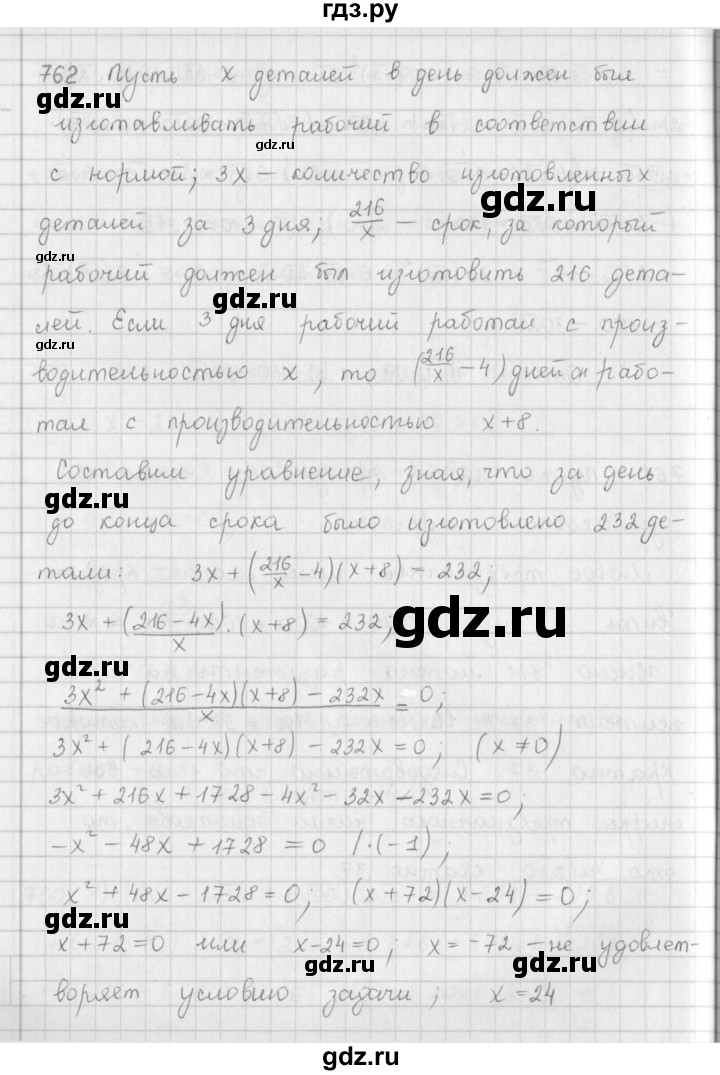 гдз.ру
762 Пусть x деталей в день должен был
gdz.ru
изготавливать рабочий в соответствии
gdz.ru
с нормой; 3x – количество изготовленных
gdz.ru
деталей за 3 дня; 216/x – срок, за который
gdz.ru
рабочий должен был изготовить 216 дета-
gdz.ru
лей. Если 3 дня рабочий работал с произ-
gdz.ru
водительностью x, то (216/x - 4) дней он рабо-
gdz.ru
тал с производительностью x+8.
Составим уравнение, зная, что за день
gdz.ru gdz.ru
до конца срока было изготовлено 232 де-
тали: 3x + (216/x - 4)(x+8) = 232;
gdz.ru
3x + (216-4x)/x · (x+8) = 232;
gdz.ru
(3x² + (216-4x)(x+8) - 232x)/x = 0;
3x² + (216-4x)(x+8) - 232x = 0; (x ≠ 0)
gdz.ru
3x² + 216x + 1728 - 4x² - 32x - 232x = 0;
-x² - 48x + 1728 = 0 /·(-1);
gdz.ru
x² + 48x - 1728 = 0; (x+72)(x-24) = 0;
gdz.ru
x+72=0 или x-24=0; x = -72 – не удовлет-
gdz.ru gdz.ru
воряет условию задачи; x = 24
gdz.ru